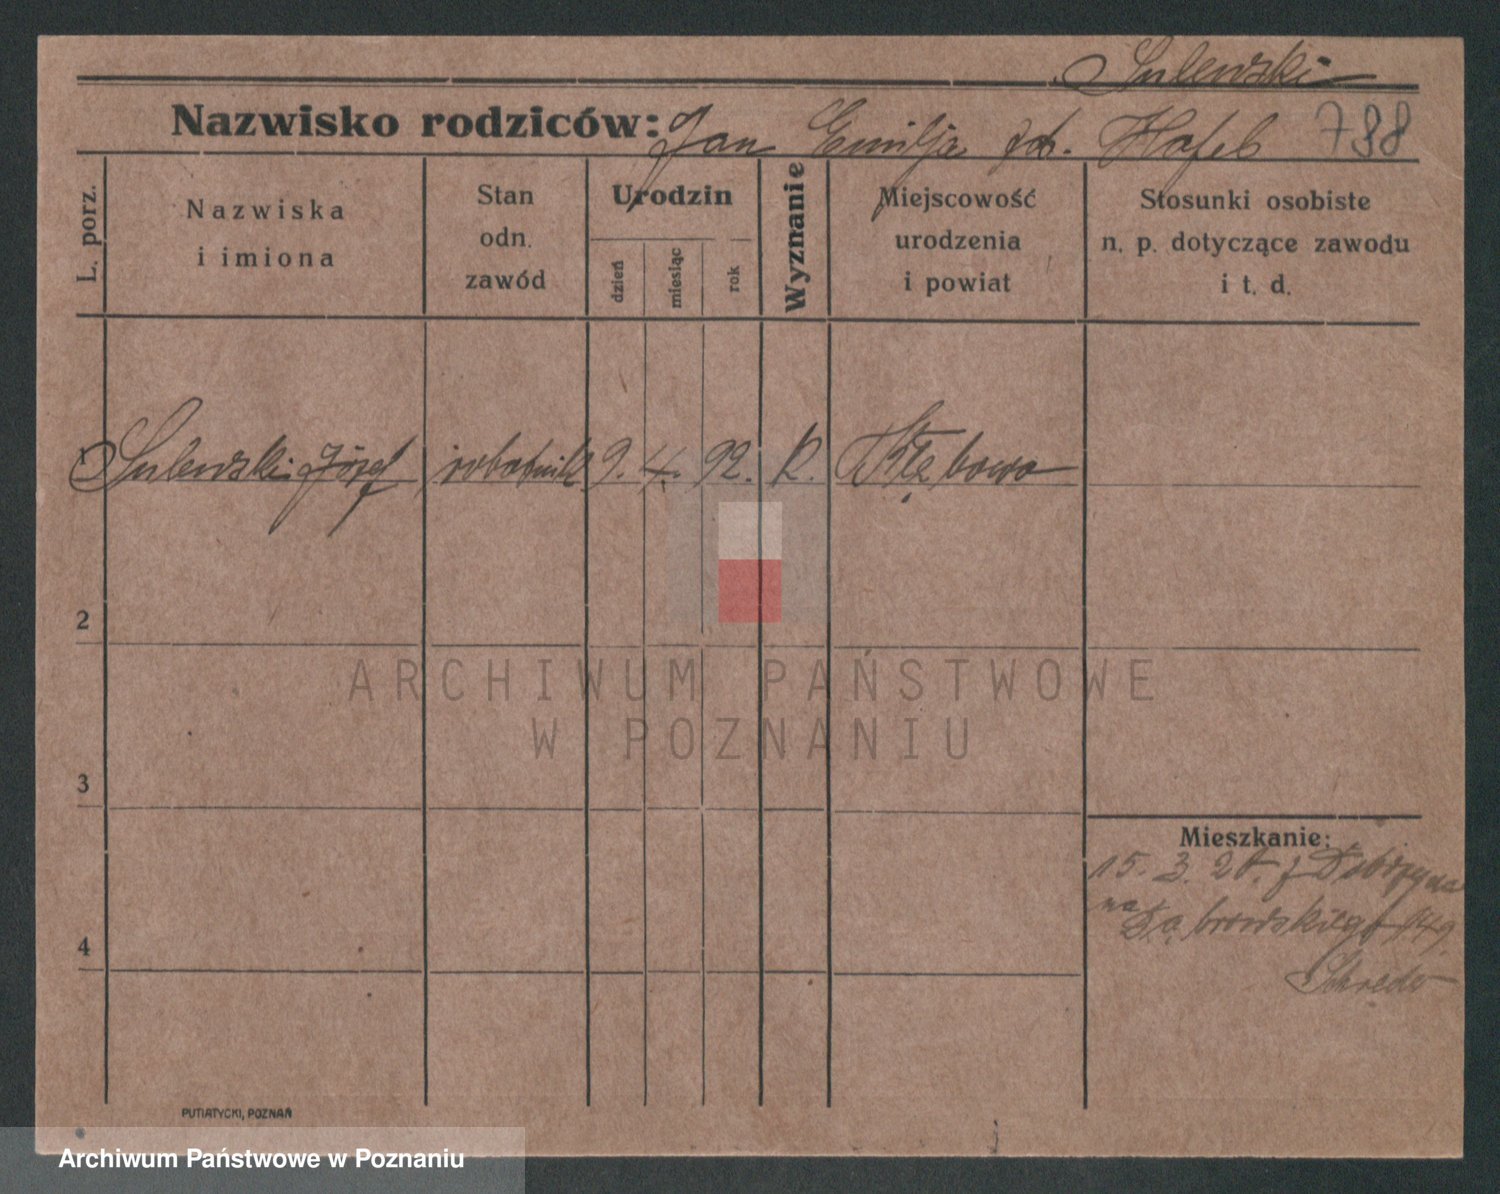 Sulewski
Nazwisko rodziców: Jan Emilja Hafeb 788
L. porz.
Nazwiska
i imiona
Stan
odn.
zawód
Urodzin
dzień
miesiąc
rok
Wyznanie
Miejscowość
urodzenia
i powiat
Stosunki osobiste
n. p. dotyczące zawodu
i t. d.
1 Sulewski Józef robotnik 9. 4. 92. R.
2
ARCHIWUM PAŃSTWOWE
W POZNANIU
3
Mieszkanie:
15. 3. 20. z
na Dąbrowskiego 149
4
PUTIATYCKI, POZNAŃ
Archiwum Państwowe w Poznaniu